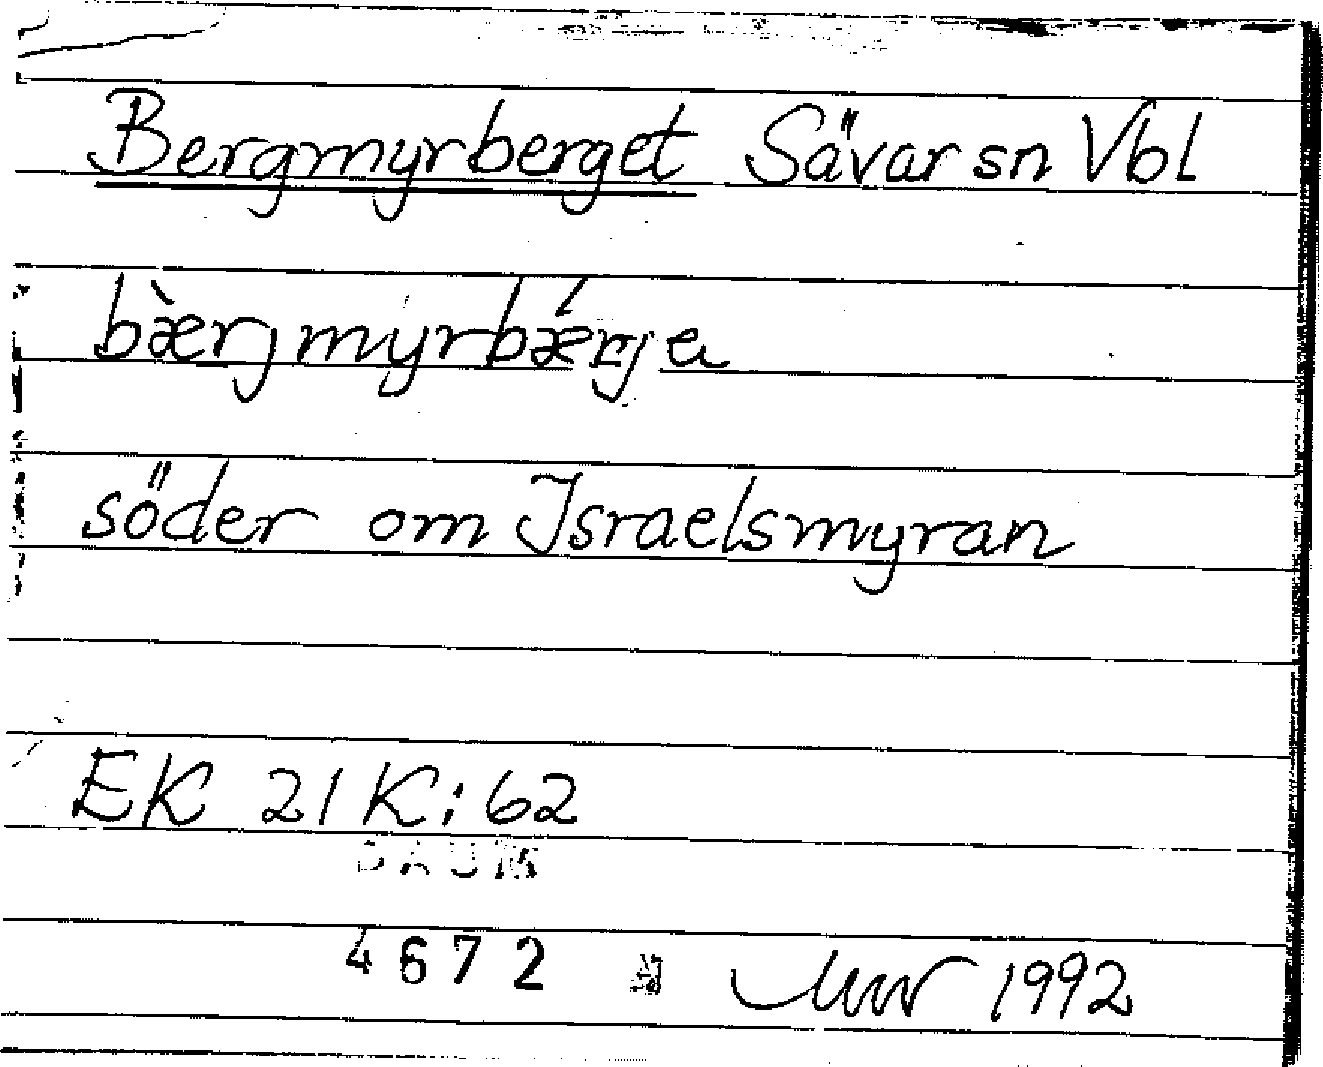 Bergmyrberget Sävar sn Vbl
bæ̀rjmyrbǽrje
söder om Israelsmyran
EK 21 K:62
DAUM
4672 1992